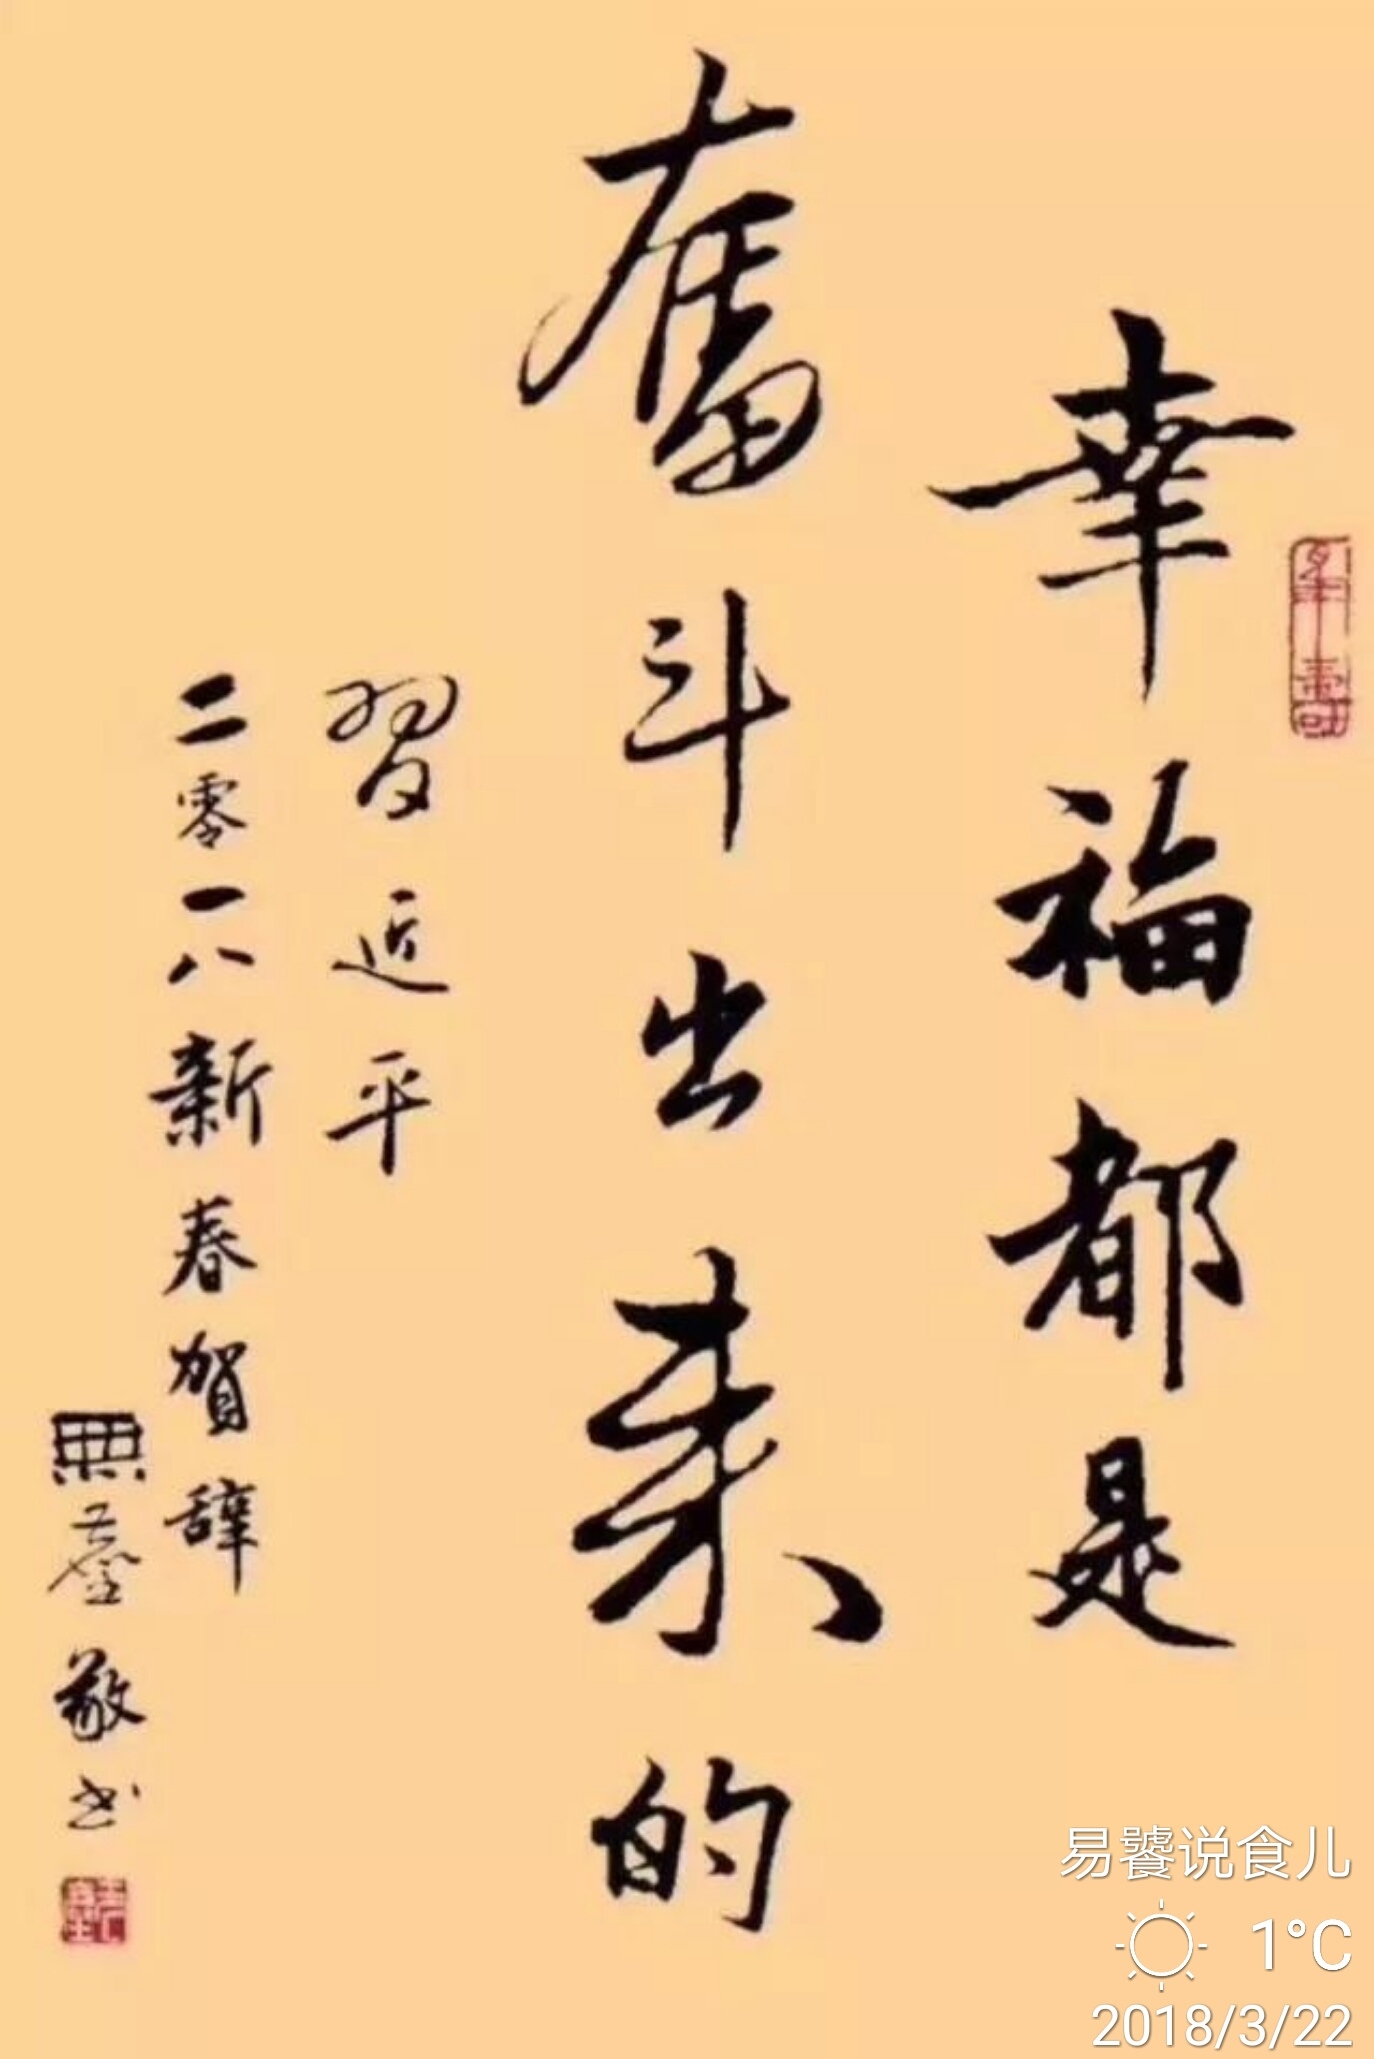 幸福都是
奮斗出来的
習近平
二零一八新春賀辞
敬书
易饕说食儿
1°C
2018/3/22